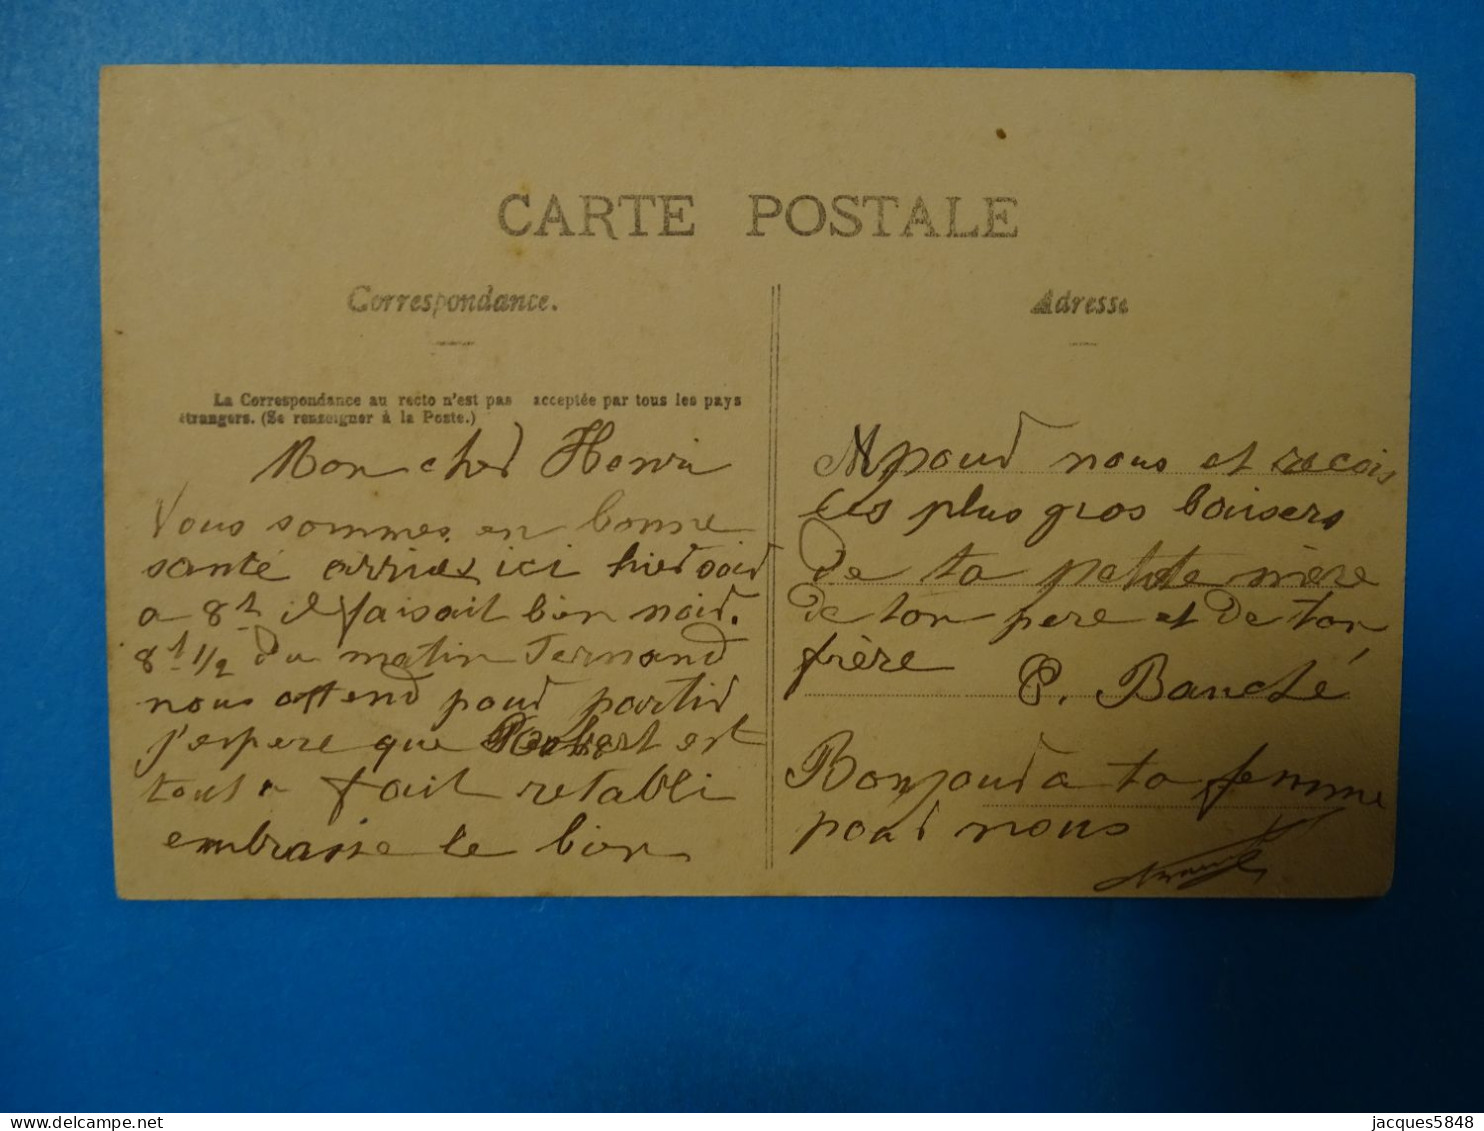 CARTE POSTALE
Correspondance.
La Correspondance au recto n'est pas acceptée par tous les pays
étrangers. (Se renseigner à la Poste.)
Mon cher Henri
Nous sommes en bonne
santé arrivés ici hier soir
a 8h il faisait bien noir.
8h 1/2 du matin Fernand
nous attend pour partir
j'espere que Robert est
tout a fait retabli
embrasse le bien
Adresse
pour nous et recois
les plus gros baisers
de ta petite mère
de ton pere et de ton
frère P. Bauché
Bonjour a ta femme
pour nous
jacques5848